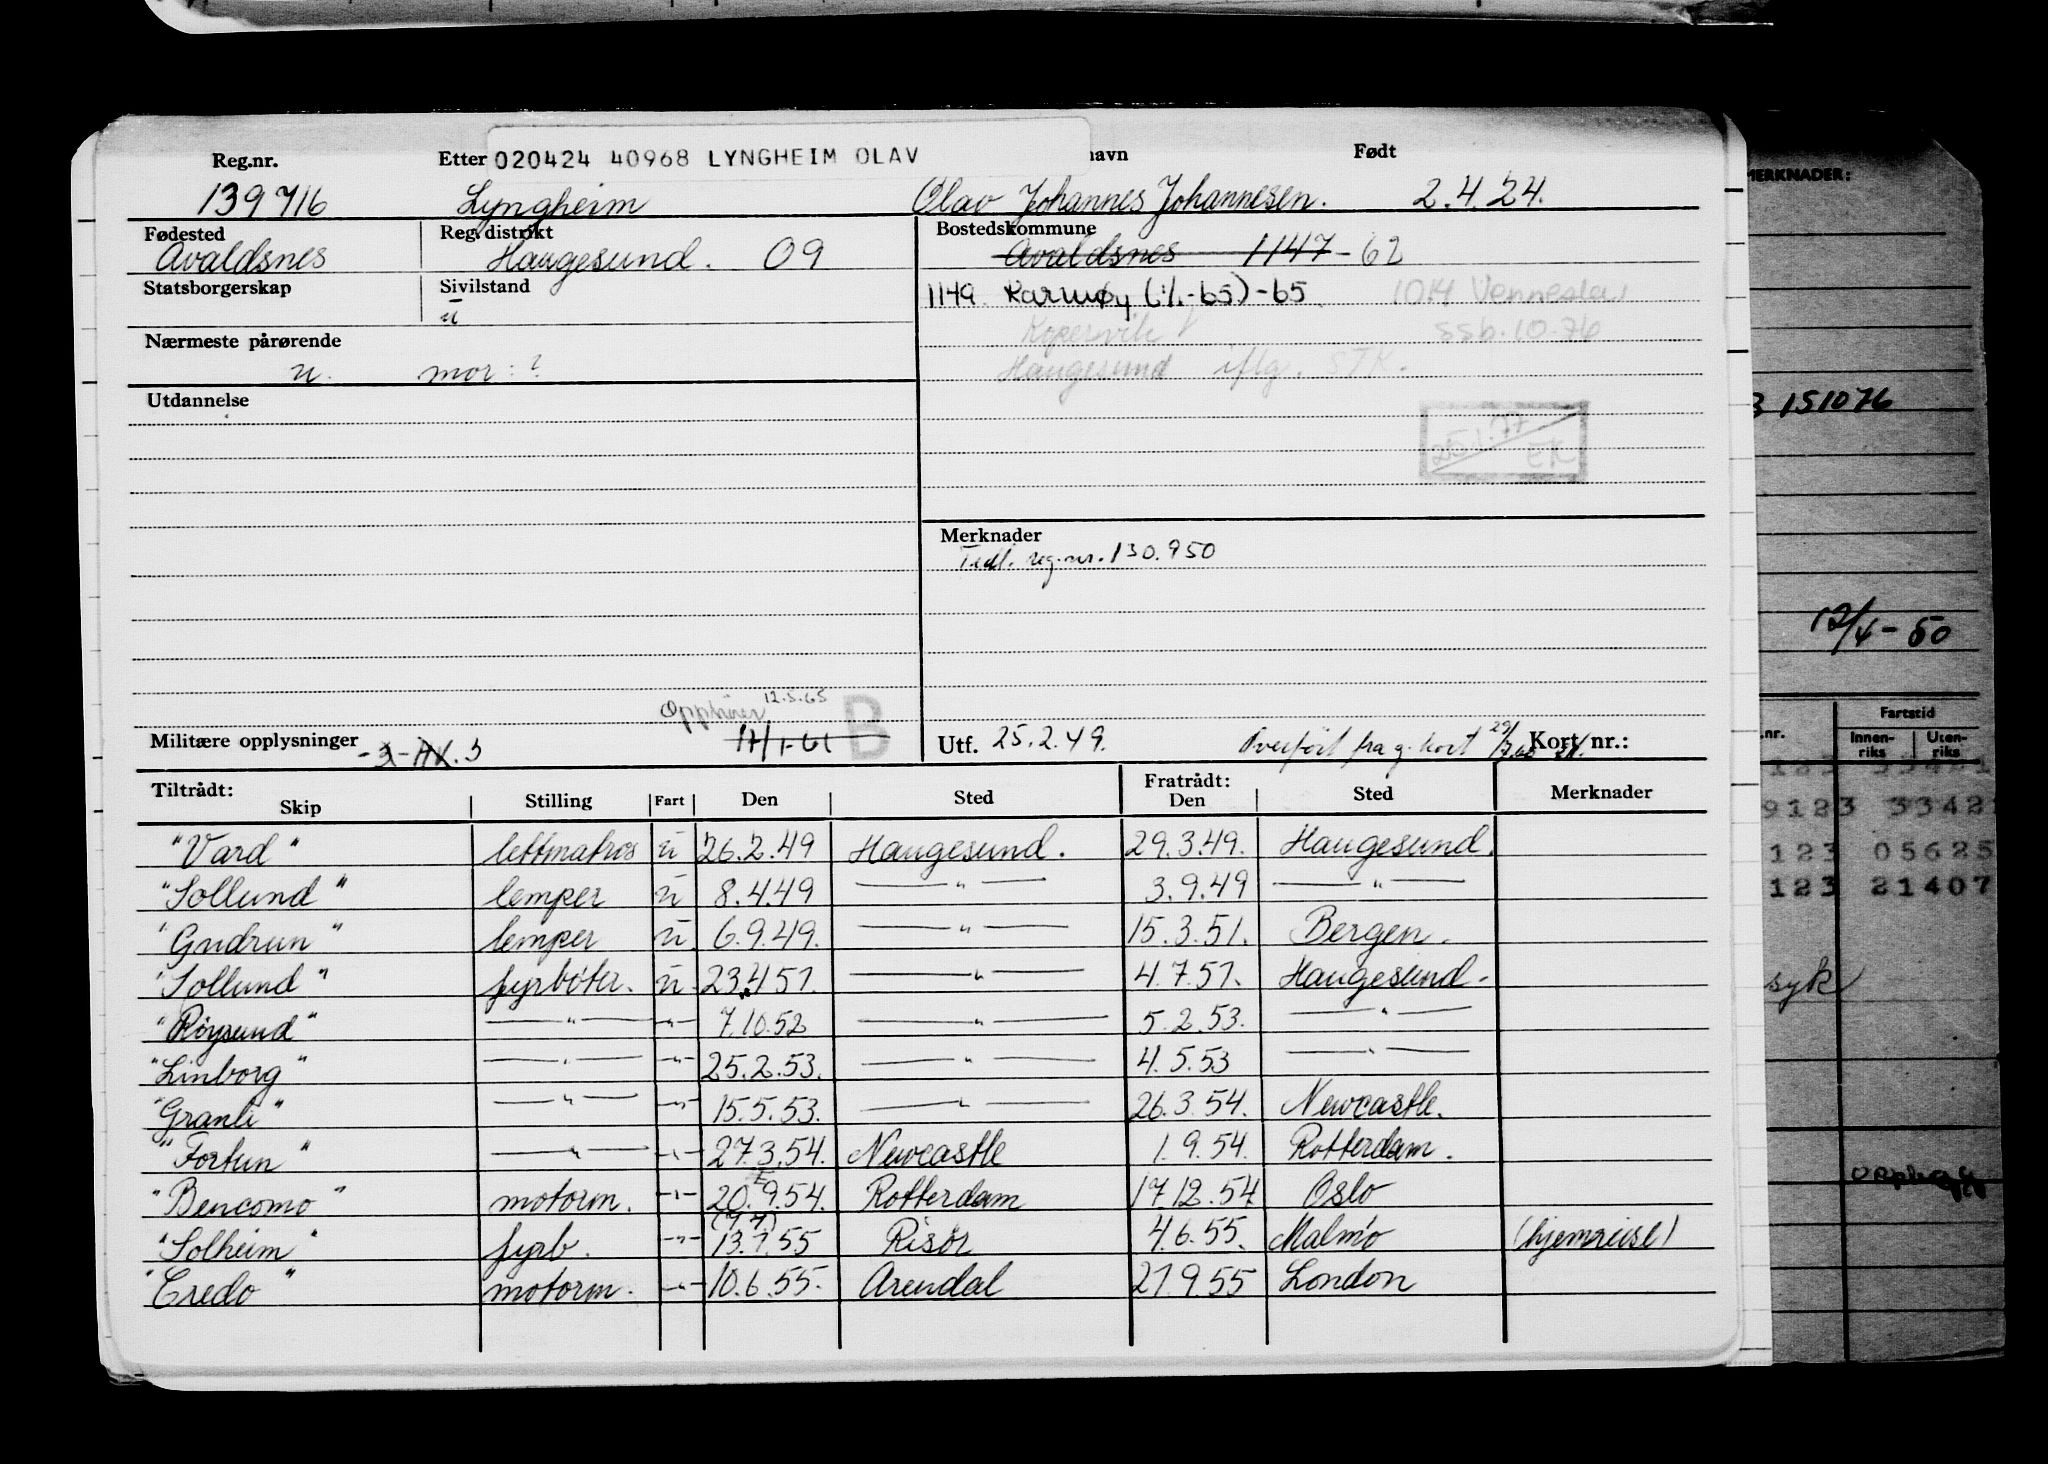 Reg.nr. Etter 020424 40968 LYNGHEIM OLAV navn Født
139716 Lyngheim Olav Johannes Johannesen. 2.4.24.
Fødested Reg. distrikt Bostedskommune
Avaldsnes Haugesund. 09 Avaldsnes 1147-62
Statsborgerskap Sivilstand 1149 Karmøy (1/1-65)-65 1014 Vennesla
u
Kopervik ssb.10.76
Nærmeste pårørende
u. mor: ? Haugesund iflg. STK.
Utdannelse
25.1.77
EK
Merknader
Tidl. reg.nr. 130.950
Opphører 12.5.65
Militære opplysninger -3-AK.3 17/1-61 B Utf. 25.2.49. Overført fra g. kort 29/ Kort nr.:
Tiltrådt: Fratrådt:
Skip Stilling Fart Den Sted Den Sted Merknader
"Vard" lettmatros u 26.2.49 Haugesund. 29.3.49. Haugesund.
"Sollund" lemper u 8.4.49 — " — 3.9.49 — " —
"Gudrun" lemper u 6.9.49. — " — 15.3.51. Bergen.
"Sollund" fyrbøter. u 23.4 51. — " — 4.7.51. Haugesund.
"Røysund" — " — -"- 7.10.52 — " — 5.2.53. — " —
"Linborg" — " — -"- 25.2.53. — " — 4.5.53 — " —
"Granli" — " — -"- 15.5.53. — " — 26.3.54. Newcastle.
"Fortun" — " — -"- 27.3.54. Newcastle 1.9.54. Rotterdam.
"Bencomo" motorm. -"- 20.9.54. Rotterdam 17.12.54 Oslo
"Solheim" fyrb. -"- 13.1.55 Risør 4.6.55. Malmø (hjemreise)
"Credo" motorm. -"- 10.6.55. Arendal 27.9.55 London
MERKNADER:
151076
12/4-50
nr. Fartstid
Innen-riks Uten-riks
123 33421
9123 3342
123 05625
123 21407
syk